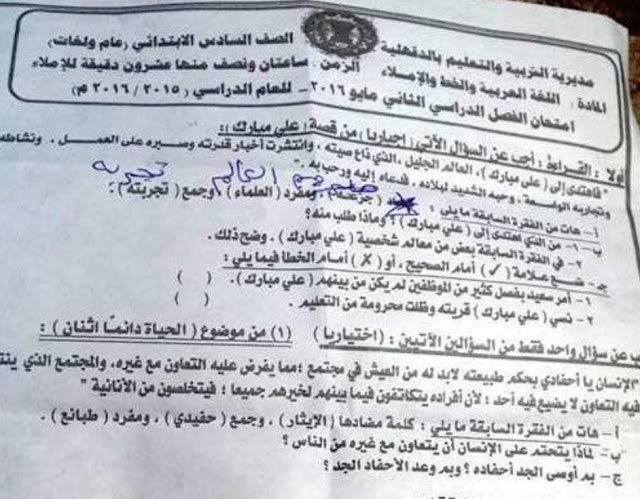 مديرية التربية والتعليم بالدقهلية
المادة : اللغة العربية والخط والإملاء
امتحان الفصل الدراسي الثاني مايو ٢٠١٦ -
الصف السادس الابتدائي (عام ولغات)
الزمن : ساعتان ونصف منها عشرون دقيقة للإملاء
للعام الدراسي ( ٢٠١٥ / ٢٠١٦ م )
أولا : القراءة : أجب عن السؤال الآتي (إجباريا) من قصة (علي مبارك) :
" فاهتدى إلى (علي مبارك) ، العالم الجليل ، الذي ذاع صيته ، وانتشرت أخبار قدرته وصبره على العمل . ونشاطه
وتجاربه الواسعة . وحبه الشديد لبلاده . فدعاه إليه ورحب به . "
العالم تجربه
أ – هات من الفقرة السابقة ما يلي : ، ومفرد (العلماء) ، وجمع (تجربته) :
ب – ١- من الذي اهتدى إلى (علي مبارك) ؟ وماذا طلب منه ؟
٢- في الفقرة السابقة بعض من معالم شخصية (علي مبارك) . وضح ذلك .
جـ - ضع علامة (✓) أمام الصحيح ، أو (✗) أمام الخطأ فيما يلي :
١- أمر سعيد بفصل كثير من الموظفين لم يكن من بينهم (علي مبارك) . ( )
٢- نسي (علي مبارك) قريته وظلت محرومة من التعليم . ( )
عن سؤال واحد فقط من السؤالين الآتيين : ( اختياريا ) (١) من موضوع ( الحياة دائمًا اثنان ) :
الإنسان يا أحفادي بحكم طبيعته لابد له من العيش في مجتمع ؛ مما يفرض عليه التعاون مع غيره، والمجتمع الذي
فيه التعاون لا يضيع فيه أحد ؛ لأن أفراده يتكاتفون فيما بينهم لخيرهم جميعا ؛ فيتخلصون من الأنانية "
أ – هات من الفقرة السابقة ما يلي : كلمة مضادها (الإيثار) ، وجمع (حفيدي) ، ومفرد ( طبائع ) .
ب – لماذا يتحتم على الإنسان أن يتعاون مع غيره من الناس ؟
ج – بم أوصى الجد أحفاده ؟ وبم وعد الأحفاد الجد ؟